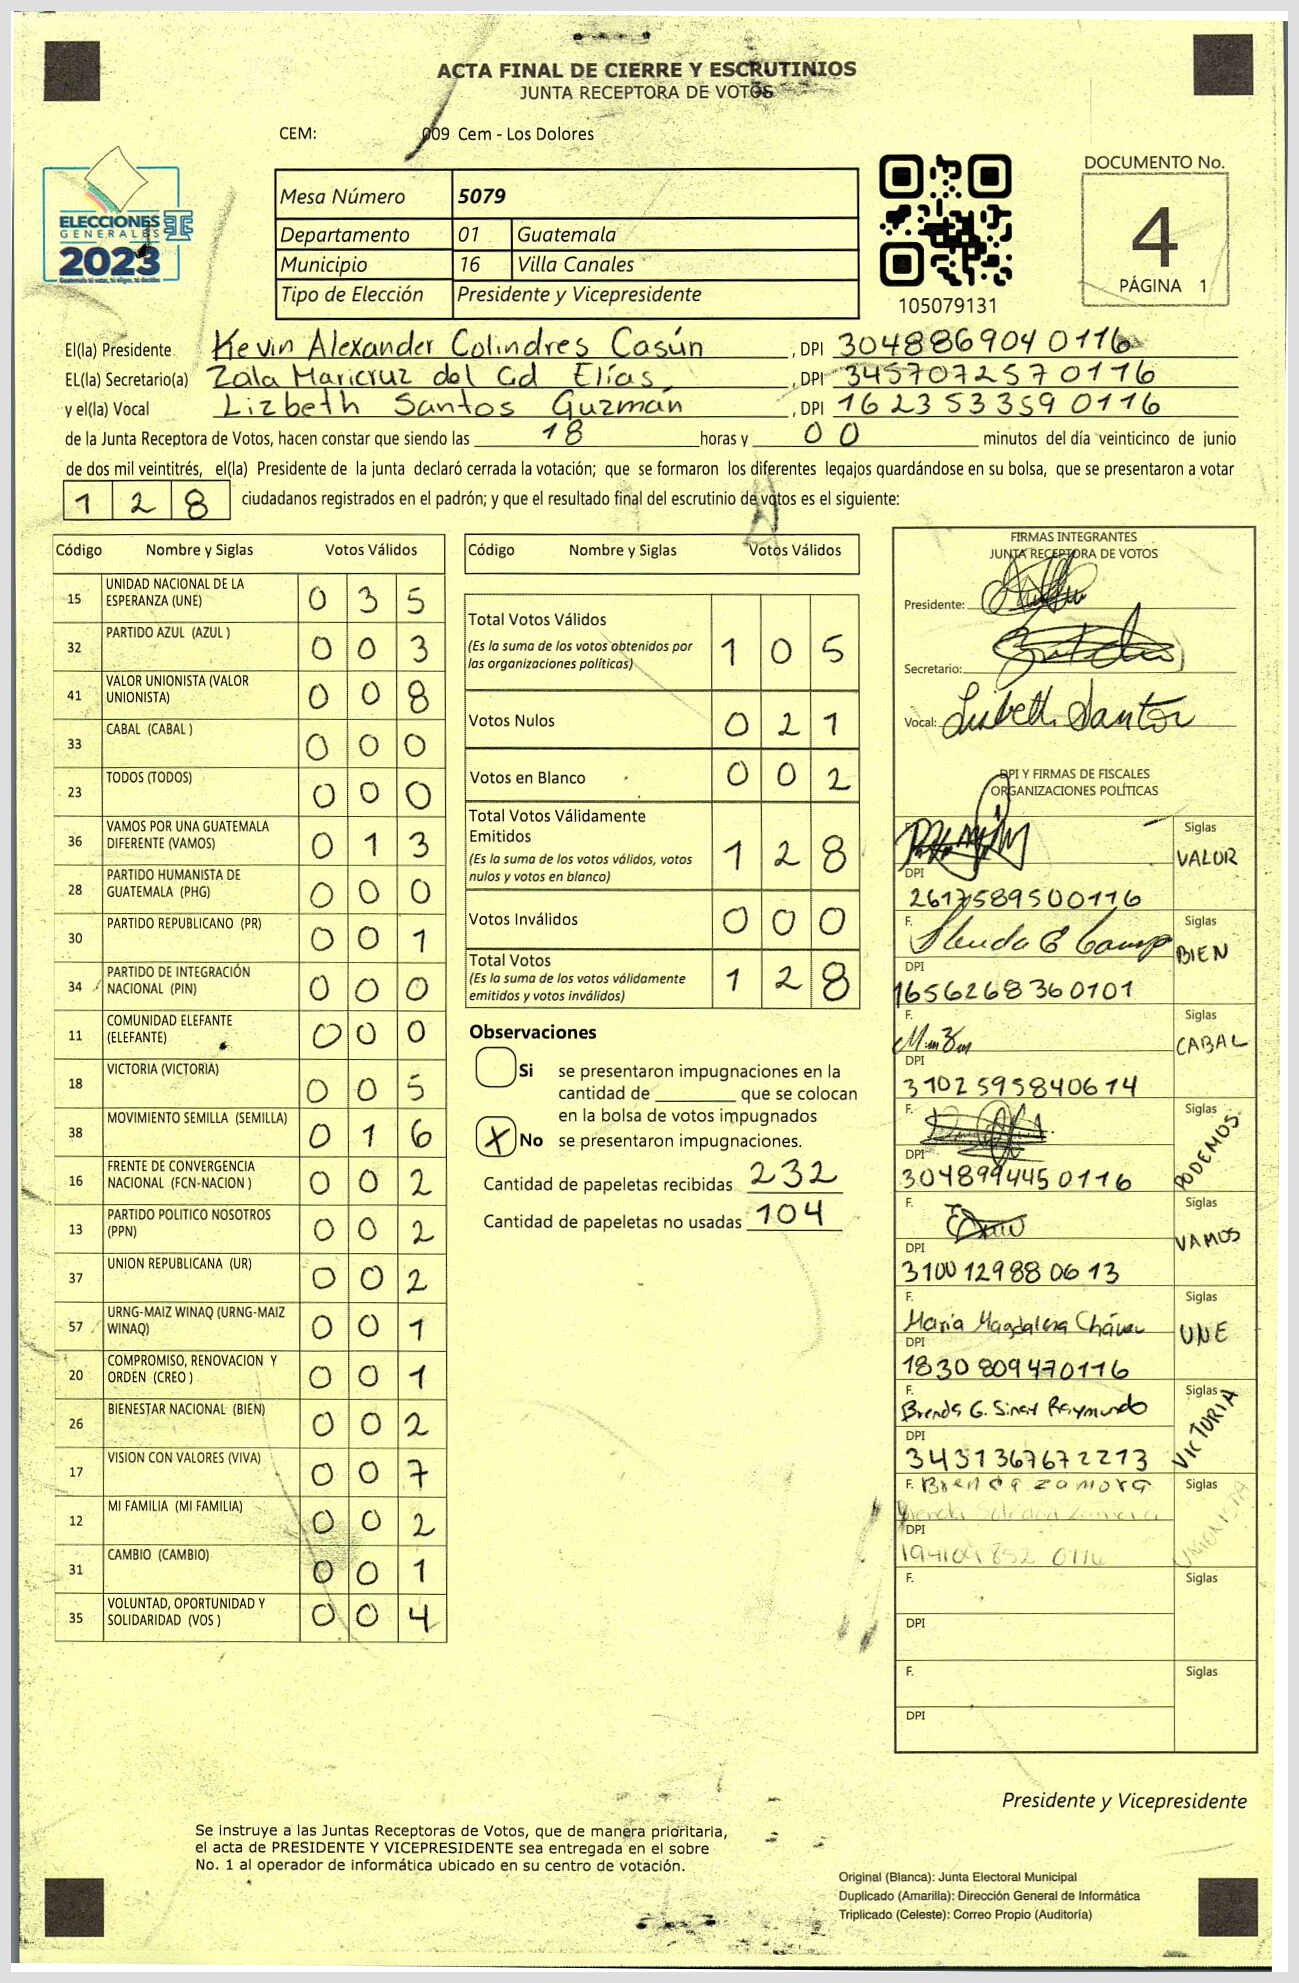 ACTA FINAL DE CIERRE Y ESCRUTINIOS
JUNTA RECEPTORA DE VOTOS
CEM: 009 Cem - Los Dolores
ELECCIONES
GENERALES
2023
Mesa Número 5079
Departamento 01 Guatemala
Municipio 16 Villa Canales
Tipo de Elección Presidente y Vicepresidente
105079131
DOCUMENTO No.
4
PÁGINA 1
El(la) Presidente Kevin Alexander Colindres Casún , DPI 304886904 0116
EL(la) Secretario(a) Zala Maricruz del Cid Elías , DPI 345707257 0116
y el(la) Vocal Lizbeth Santos Guzmán , DPI 162353359 0116
de la Junta Receptora de Votos, hacen constar que siendo las 18 horas y 00 minutos del día veinticinco de junio
de dos mil veintitrés, el(la) Presidente de la junta declaró cerrada la votación; que se formaron los diferentes legajos guardándose en su bolsa, que se presentaron a votar
128 ciudadanos registrados en el padrón; y que el resultado final del escrutinio de votos es el siguiente:
Código Nombre y Siglas Votos Válidos
15 UNIDAD NACIONAL DE LA ESPERANZA (UNE) 0 3 5
32 PARTIDO AZUL (AZUL ) 0 0 3
41 VALOR UNIONISTA (VALOR UNIONISTA) 0 0 8
33 CABAL (CABAL ) 0 0 0
23 TODOS (TODOS) 0 0 0
36 VAMOS POR UNA GUATEMALA DIFERENTE (VAMOS) 0 1 3
28 PARTIDO HUMANISTA DE GUATEMALA (PHG) 0 0 0
30 PARTIDO REPUBLICANO (PR) 0 0 1
34 PARTIDO DE INTEGRACIÓN NACIONAL (PIN) 0 0 0
11 COMUNIDAD ELEFANTE (ELEFANTE) 0 0 0
18 VICTORIA (VICTORIA) 0 0 5
38 MOVIMIENTO SEMILLA (SEMILLA) 0 1 6
16 FRENTE DE CONVERGENCIA NACIONAL (FCN-NACION ) 0 0 2
13 PARTIDO POLITICO NOSOTROS (PPN) 0 0 2
37 UNION REPUBLICANA (UR) 0 0 2
57 URNG-MAIZ WINAQ (URNG-MAIZ WINAQ) 0 0 1
20 COMPROMISO, RENOVACION Y ORDEN (CREO ) 0 0 1
26 BIENESTAR NACIONAL (BIEN) 0 0 2
17 VISION CON VALORES (VIVA) 0 0 7
12 MI FAMILIA (MI FAMILIA) 0 0 2
31 CAMBIO (CAMBIO) 0 0 1
35 VOLUNTAD, OPORTUNIDAD Y SOLIDARIDAD (VOS ) 0 0 4
Código Nombre y Siglas Votos Válidos
Total Votos Válidos 1 0 5
(Es la suma de los votos obtenidos por
las organizaciones políticas)
Votos Nulos 0 2 1
Votos en Blanco 0 0 2
Total Votos Válidamente
Emitidos 1 2 8
(Es la suma de los votos válidos, votos
nulos y votos en blanco)
Votos Inválidos 0 0 0
Total Votos 1 2 8
(Es la suma de los votos válidamente
emitidos y votos inválidos)
Observaciones
Si se presentaron impugnaciones en la
cantidad de ________ que se colocan
en la bolsa de votos impugnados
X No se presentaron impugnaciones.
Cantidad de papeletas recibidas 232
Cantidad de papeletas no usadas 104
FIRMAS INTEGRANTES
JUNTA RECEPTORA DE VOTOS
Presidente:
Secretario:
Vocal: Lisbeth Santos
DPI Y FIRMAS DE FISCALES
ORGANIZACIONES POLÍTICAS
F. Siglas
VALOR
DPI
2617589500116
F. Siglas
BIEN
DPI
1656268360101
F. Siglas
CABAL
DPI
3102595840614
F. Siglas
PODEMOS
DPI
3048994450116
F. Siglas
VAMOS
DPI
3100129880613
F. Siglas
María Magdalena Chávez UNE
DPI
1830809470116
F. Siglas
Brenda G. Sinay Raymundo VICTORIA
DPI
3431367672213
F. Brenda Zamora Siglas
UNIONISTA
DPI
F. Siglas
DPI
F. Siglas
DPI
Presidente y Vicepresidente
Se instruye a las Juntas Receptoras de Votos, que de manera prioritaria,
el acta de PRESIDENTE Y VICEPRESIDENTE sea entregada en el sobre
No. 1 al operador de informática ubicado en su centro de votación.
Original (Blanca): Junta Electoral Municipal
Duplicado (Amarilla): Dirección General de Informática
Triplicado (Celeste): Correo Propio (Auditoría)